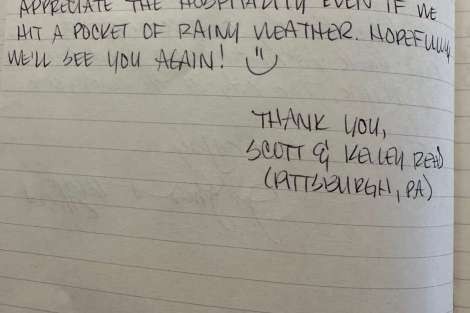 APPRECIATE THE HOSPITALITY EVEN IF WE
HIT A POCKET OF RAINY WEATHER. HOPEFULLY
WE'LL SEE YOU AGAIN!
THANK YOU,
SCOTT & KELLEY READ
(PITTSBURGH, PA)